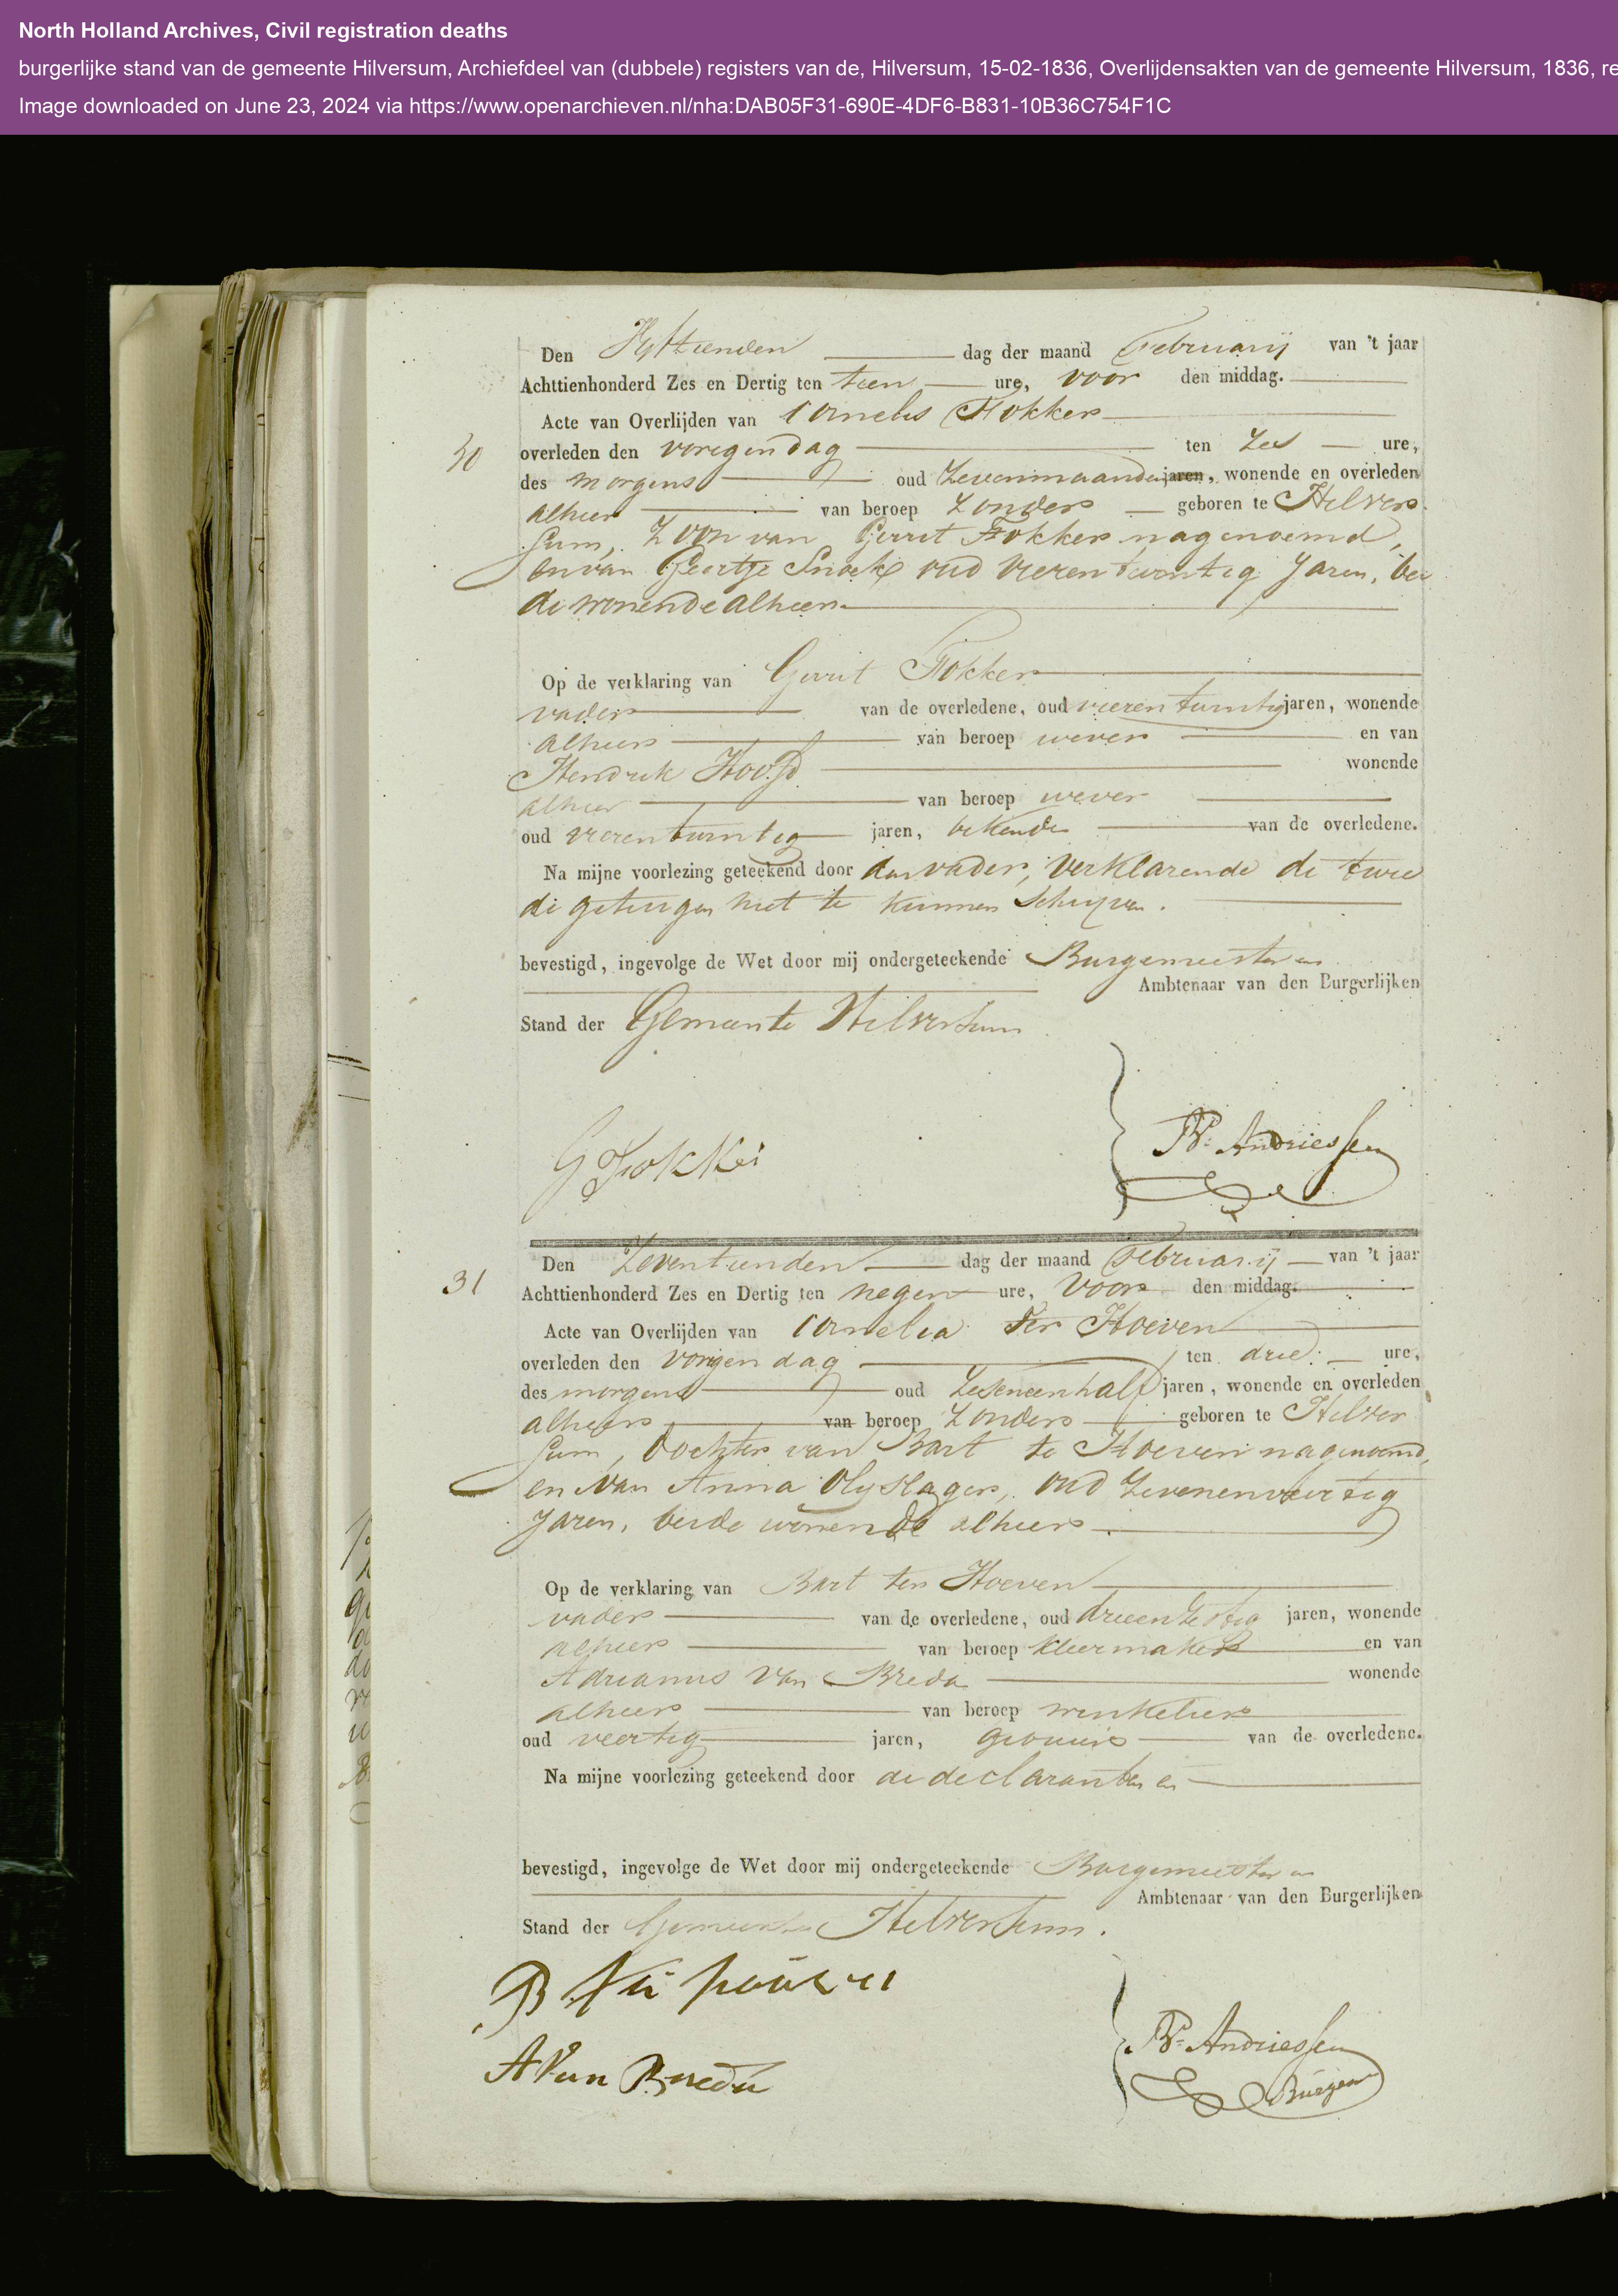 North Holland Archives, Civil registration deaths
burgerlijke stand van de gemeente Hilversum, Archiefdeel van (dubbele) registers van de, Hilversum, 15-02-1836, Overlijdensakten van de gemeente Hilversum, 1836, re
Image downloaded on June 23, 2024 via https://www.openarchieven.nl/nha:DAB05F31-690E-4DF6-B831-10B36C754F1C
Den Vijftienden dag der maand Februarij van 't jaar
Achttienhonderd Zes en Dertig ten tien ure, voor den middag.
Acte van Overlijden van Cornelis Fokker
30 overleden den vorigen dag ten Zes ure,
des morgens oud Zeven maanden jaren, wonende en overleden
alhier van beroep Zonder geboren te Hilver
sum, Zoon van Gerrit Fokker nagenoemd,
en van Geertje Snoek oud vierentwintig Jaren, bei
de wonende alhier
Op de verklaring van Gerrit Fokker
vader van de overledene, oud vierentwintig jaren, wonende
alhier van beroep wever en van
Hendrik Hoofd wonende
alhier van beroep wever
oud vierentwintig jaren, bekende van de overledene.
Na mijne voorlezing geteekend door den vader, verklarende de twee
de getuigen niet te kunnen Schrijven.
bevestigd, ingevolge de Wet door mij ondergeteekende Burgemeester en
Ambtenaar van den Burgerlijken
Stand der Gemeente Hilversum
G Fokker
P. Andriessen
Den Zeventienden dag der maand Februarij van 't jaar
31 Achttienhonderd Zes en Dertig ten negen ure, Voor den middag.
Acte van Overlijden van Cornelia Ter Hoeven
overleden den vorigen dag ten drie ure,
des morgens oud Zeseneenhalf jaren, wonende en overleden
alhier van beroep Zonder geboren te Hilver
sum, dochter van Bart te Hoeven nagenoemd,
en van Anna Olyslager, oud Zevenenveertig
Jaren, beide wonende alhier.
Op de verklaring van Bart ter Hoeven
vader van de overledene, oud drieenzestig jaren, wonende
alhier van beroep kleermaker en van
Adrianus van Breda wonende
alhier van beroep winkelier
oud veertig jaren, gebuur van de overledene.
Na mijne voorlezing geteekend door de declaranten en
bevestigd, ingevolge de Wet door mij ondergeteekende Burgemeester en
Ambtenaar van den Burgerlijken
Stand der Gemeente Hilversum.
A Van Breda
P. Andriessen
Burgem